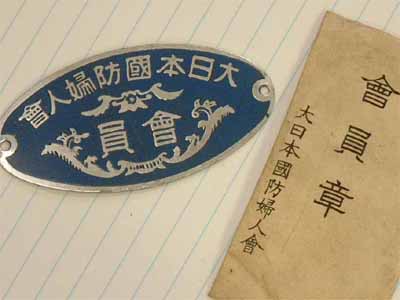 大日本國防婦人會
會員
會員章
大日本國防婦人會